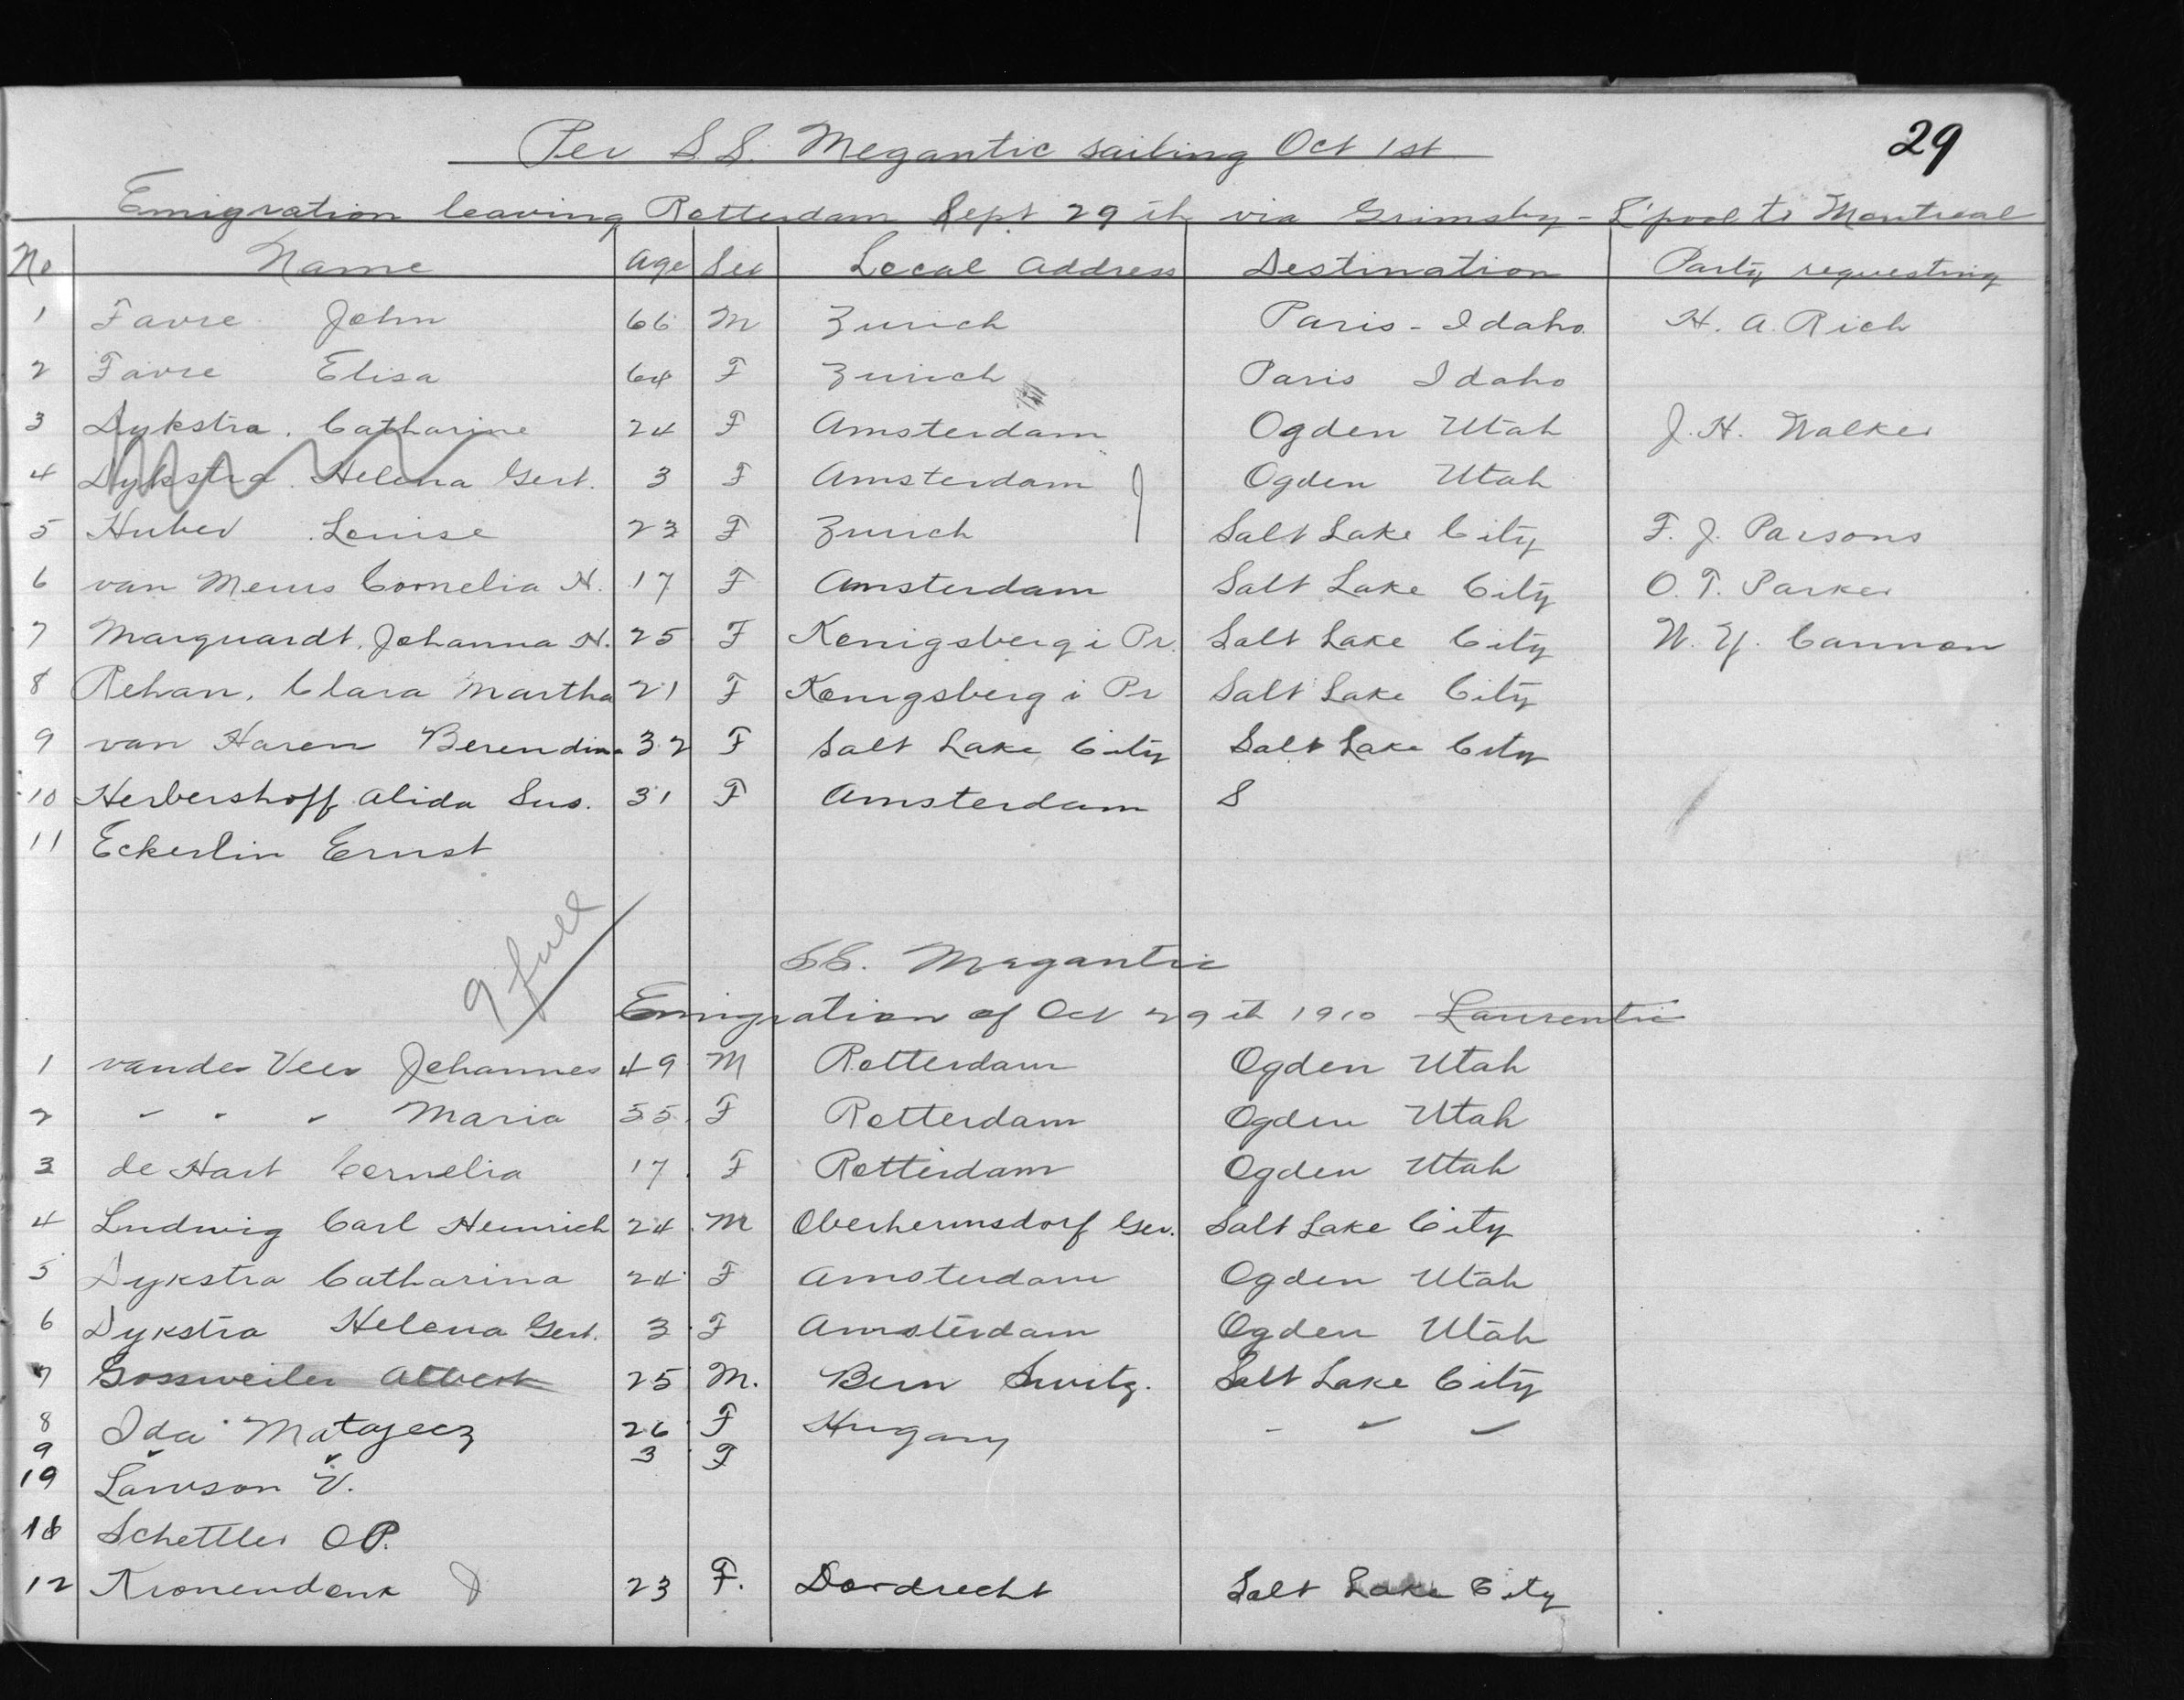 29
Per S.S. Megantic sailing Oct 1st
Emigration leaving Rotterdam Sept 29th via Grimsby - L'pool to Montreal
No Name Age Sex Local Address Destination Party requesting
1 Favre John 66 M Zurich Paris - Idaho H. A. Rich
2 Favre Elisa 64 F Zurich Paris Idaho
3 Dykstra. Catharine 24 F Amsterdam Ogden Utah J. H. Walker
4 Dykstra. Helena Gert. 3 F Amsterdam Ogden Utah
5 Huber Louise 23 F Zurich Salt Lake City F. J. Parsons
6 van Meurs Cornelia H. 17 F Amsterdam Salt Lake City O. T. Parker
7 Marquardt, Johanna H. 25 F Konigsberg i Pr. Salt Lake City W. Y. Cannon
8 Rehan, Clara Martha 21 F Konigsberg i Pr Salt Lake City
9 van Haren Berendina 32 F Salt Lake City Salt Lake City
10 Herbershoff Alida Sus. 31 F Amsterdam S
11 Eckerlin Ernst
9 full
SS. Megantic
Emigration of Oct 29th 1910 Laurentic
1 vander Veer Johannes 49 M Rotterdam Ogden Utah
2 " " " Maria 55 F Rotterdam Ogden Utah
3 de Hart Cornelia 17 F Rotterdam Ogden Utah
4 Ludwig Carl Heinrich 24 M Oberhermsdorf Ger. Salt Lake City
5 Dykstra Catharina 24 F Amsterdam Ogden Utah
6 Dykstra Helena Gert. 3 F Amsterdam Ogden Utah
7 Gossweiler Albert 25 M. Bern Switz. Salt Lake City
8 Ida Matajecz 26 F Hugary " " "
9 " " 3 F
Lawson V.
Schettler OP.
12 Kronendonk J 23 F. Dordrecht Salt Lake City